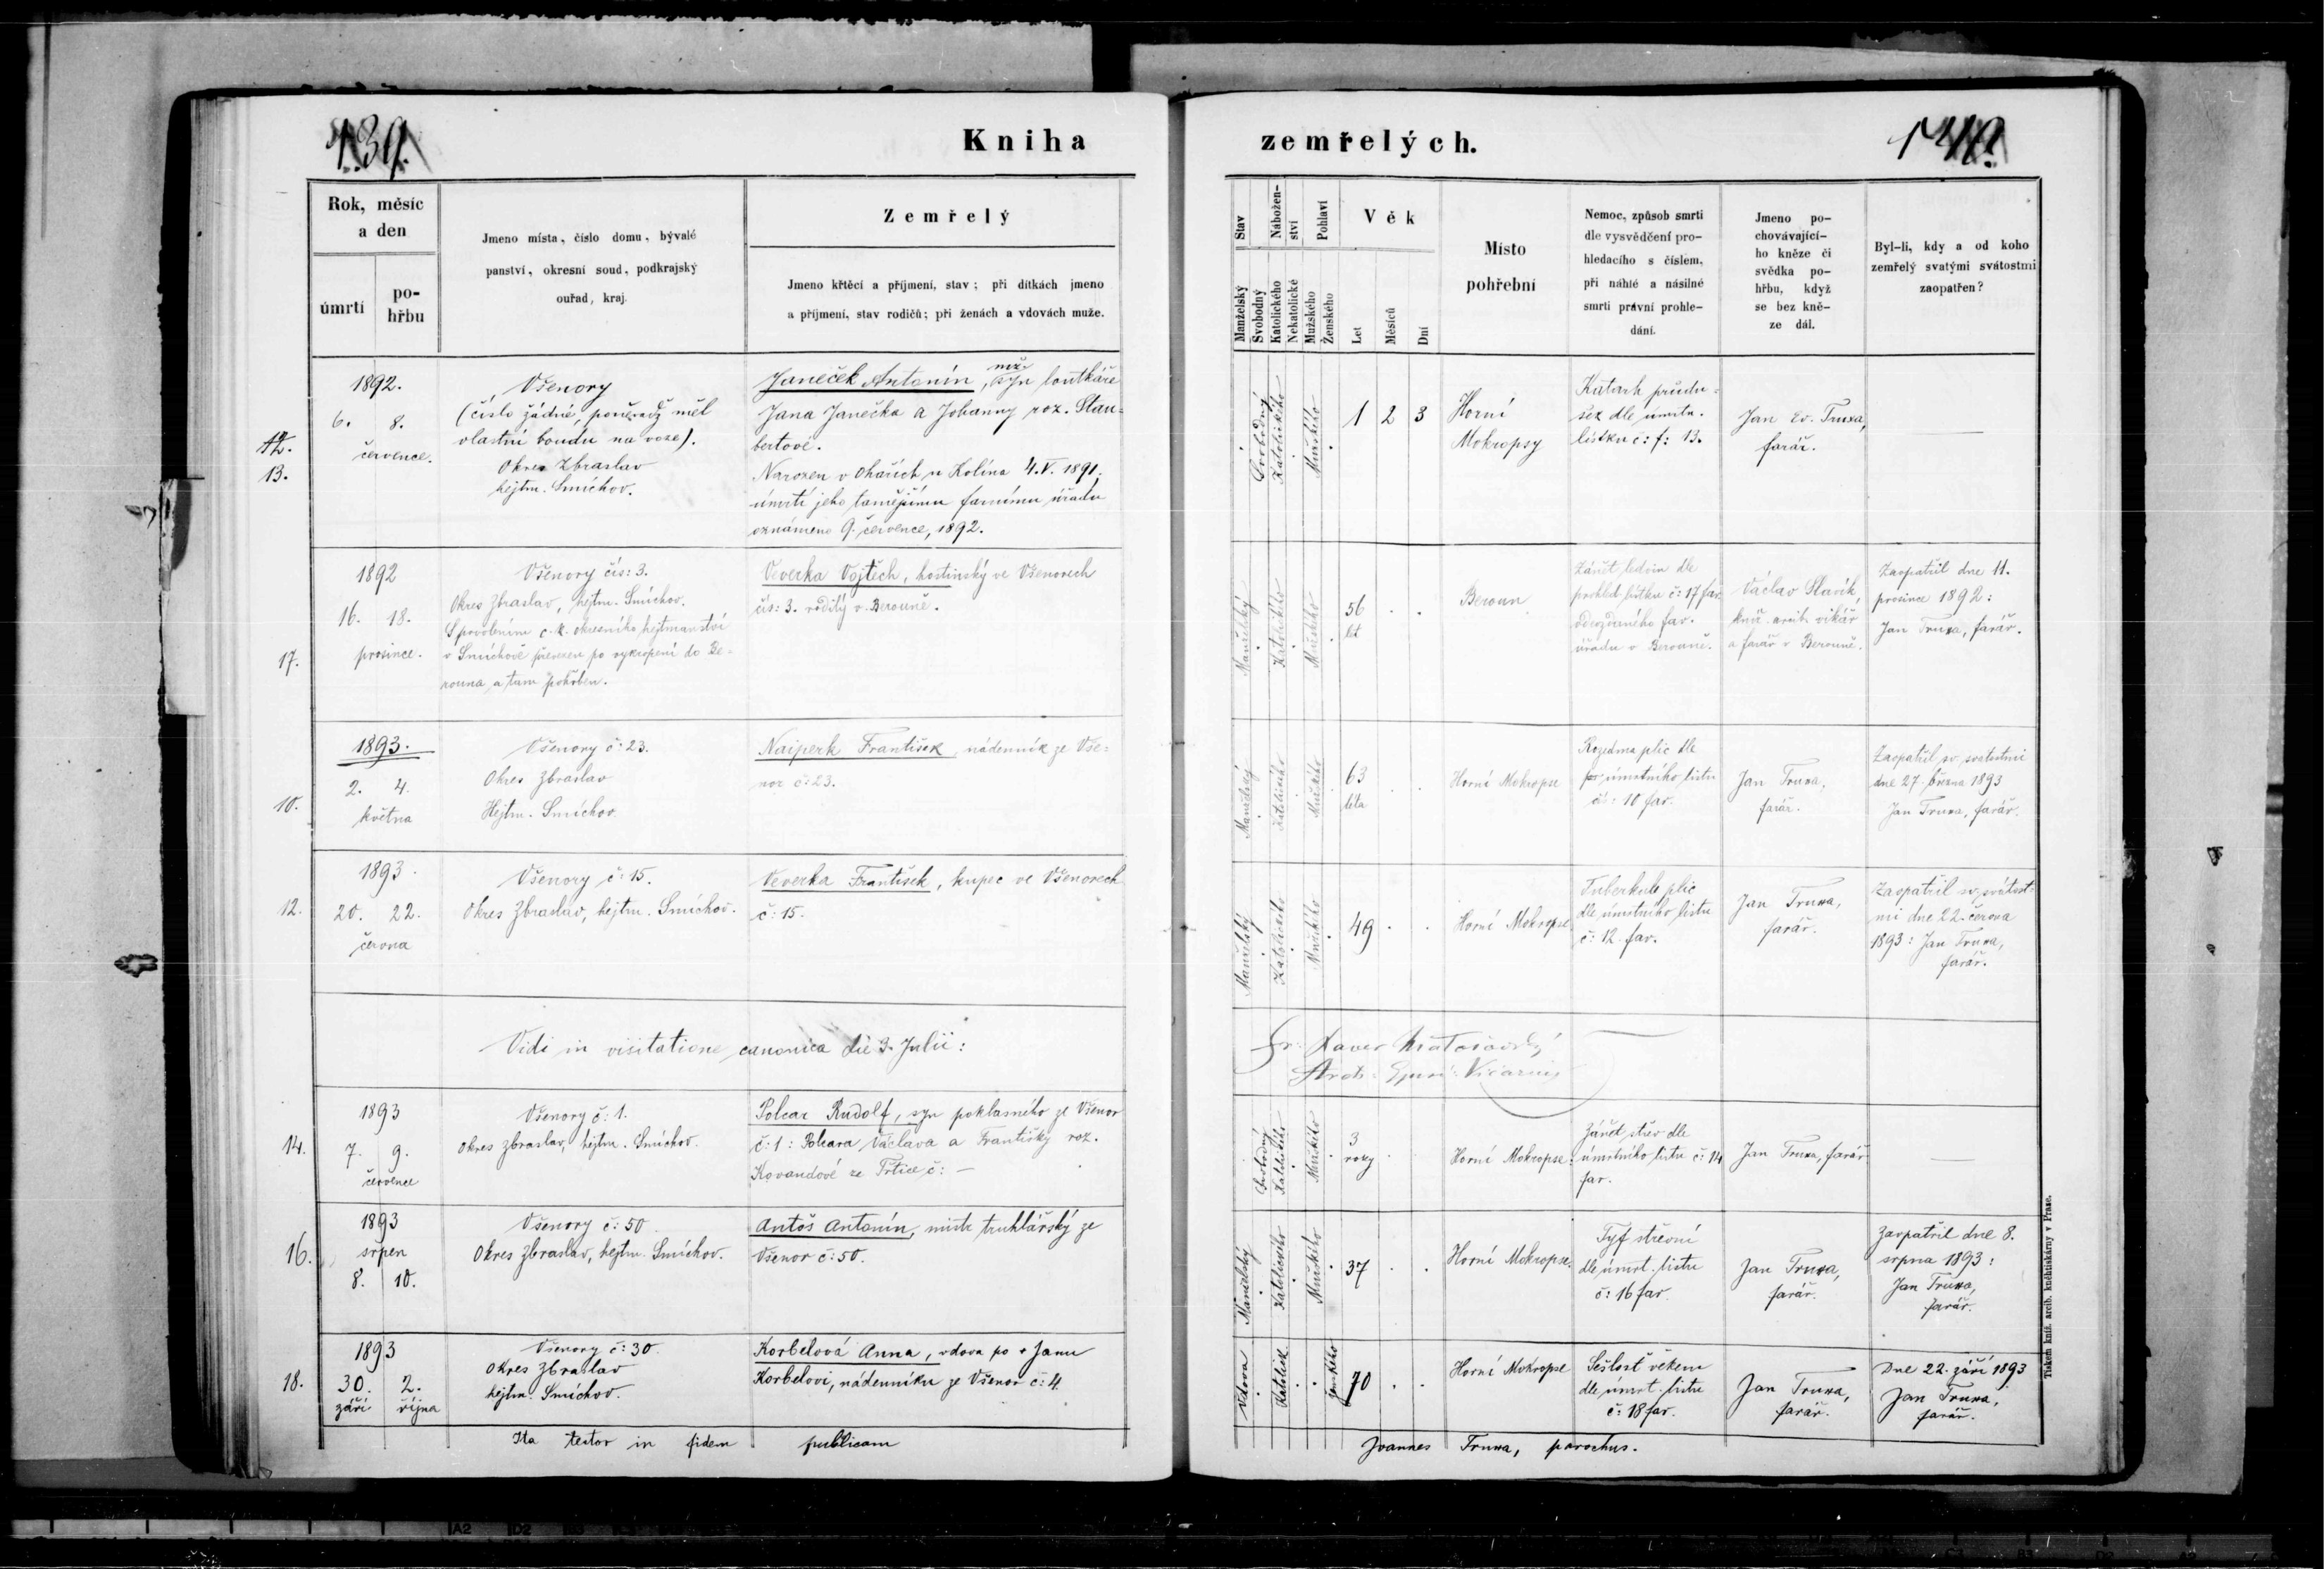 139.
Kniha
zemřelých.
140.
Rok, měsíc
a den
úmrtí
po-
hřbu
Jmeno místa, číslo domu, bývalé
panství, okresní soud, podkrajský
ouřad, kraj.
Zemřelý
Jmeno křtěcí a příjmení, stav; při dítkách jmeno
a příjmení, stav rodičů; při ženách a vdovách muže.
Stav
Manželský
Svobodný
Nábožen-
ství
Katolického
Nekatolické
Pohlaví
Mužského
Ženského
Věk
Let
Měsíců
Dní
Místo
pohřební
Nemoc, způsob smrti
dle vysvědčení pro-
hledacího s číslem,
při náhlé a násilné
smrti právní prohle-
dání.
Jmeno po-
chovávající-
ho kněze či
svědka po-
hřbu, když
se bez kně-
ze dál.
Byl-li, kdy a od koho
zemřelý svatými svátostmi
zaopatřen?
12.
13.
1892.
6. 8.
července.
Všenory
(číslo žádné, poněvadž měl
vlastní boudu na voze).
Okres Zbraslav
hejtm. Smíchov.
Janeček Antonín, syn loutkáře
Jana Janečka a Johanny roz. Stau-
bertové.
Narozen v Ohařích u Kolína 4. V. 1891;
úmrtí jeho tamějšímu farnímu úřadu
oznámeno 9. července, 1892.
Svobodný
Katolického
Mužského
1 2 3
Horní
Mokropsy
Katarh průdu-
šek dle úmrtn.
lístku č: f: 13.
Jan Ev. Truxa,
farář.
—
17.
1892
16. 18.
prosince.
Všenory čís: 3.
Okres Zbraslav, hejtm. Smíchov.
S povolením c. k. okresního hejtmanství
v Smíchově převezen po vykropení do Be-
rouna, a tam pohřben.
Veverka Vojtěch, hostinský ve Všenorech
čís: 3. rodilý v Berouně.
Manželský
Katolického
Mužského
56
let
Beroun
Zánět ledvin dle
prohled. lístku č: 17 far.
odevzdaného far.
úřadu v Berouně.
Václav Slavík,
kníž. arcib. vikář
a farář v Berouně.
Zaopatřil dne 11.
prosince 1892:
Jan Truxa, farář.
10.
1893.
2. 4.
května
Všenory č: 23.
Okres Zbraslav
Hejtm. Smíchov.
Naiperk František, nádenník ze Vše-
nor č: 23.
Manželský
Katolického
Mužského
63
léta
Horní Mokropse
Rozedma plic dle
úmrtního listu
čís: 10 far.
Jan Truxa,
farář.
Zaopatřil sv. svátostmi
dne 27. března 1893
Jan Truxa, farář.
12.
1893.
20. 22.
června
Všenory č: 15.
Okres Zbraslav, hejtm. Smíchov.
Veverka František, kupec ve Všenorech
č: 15.
Manželský
Katolického
Mužského
49
Horní Mokropse
Tuberkule plic
dle úmrtního listu
č: 12. far.
Jan Truxa,
farář.
Zaopatřil sv. svátost-
mi dne 22. června
1893: Jan Truxa,
farář.
Vidi in visitatione canonica die 9. Julii:
Fr. Xaver
14.
1893
7. 9.
července
Všenory č: 1.
okres Zbraslav, hejtm. Smíchov.
Polcar Rudolf, syn poklasného ze Všenor
č: 1: Polcara Václava a Františky roz.
Kovandové ze Trtice č: —
Svobodný
Katolického
Mužského
3
roky
Horní Mokropse:
Zánět střev dle
úmrtního listu č: 14
far.
Jan Truxa, farář
—
16.
1893
srpen
8. 10.
Všenory č: 50.
Okres Zbraslav, hejtm. Smíchov.
Antoš Antonín, mistr truhlářský ze
Všenor č: 50.
Manželský
Katolického
Mužského
37
Horní Mokropse.
Tyf střevní
dle úmrt. listu
č: 16 far.
Jan Truxa,
farář.
Zaopatřil dne 8.
srpna 1893:
Jan Truxa,
farář.
18.
1893
30. 2.
září října
Všenory č: 30.
Okres Zbraslav
hejtm. Smíchov.
Korbelová Anna, vdova po † Janu
Korbelovi, nádenníku ze Všenor č: 4.
Vdova
Katolick.
ženského
70
Horní Mokropse
Sešlost věkem
dle úmrt. listu
č: 18 far.
Jan Truxa,
farář.
Dne 22. září 1893
Jan Truxa,
farář.
Ita testor in fidem publicam
Joannes Truxa, parochus.
Tiskem kníž. arcib. knihtiskárny v Praze.